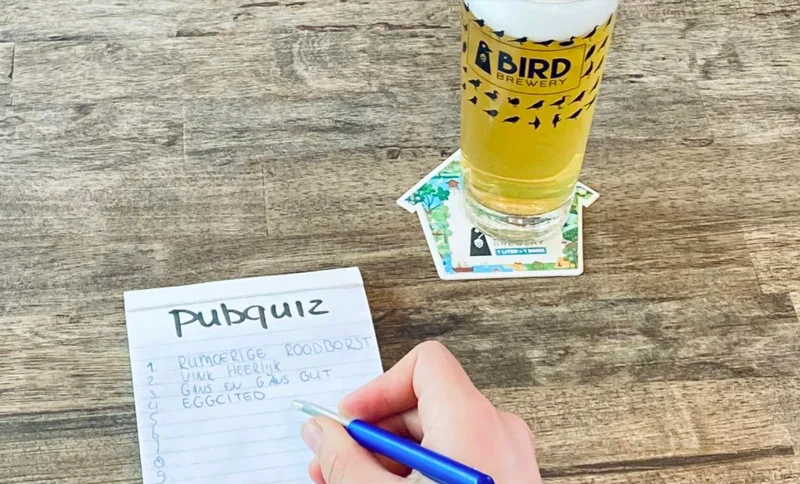 BIRD
BREWERY
BREWERY
Pubquiz
1. RUMOERIGE ROODBORST
2 VINK HEERLIJK
3 GANS EN GANS GUT
4 EGGCITED
5
6
7
8
9